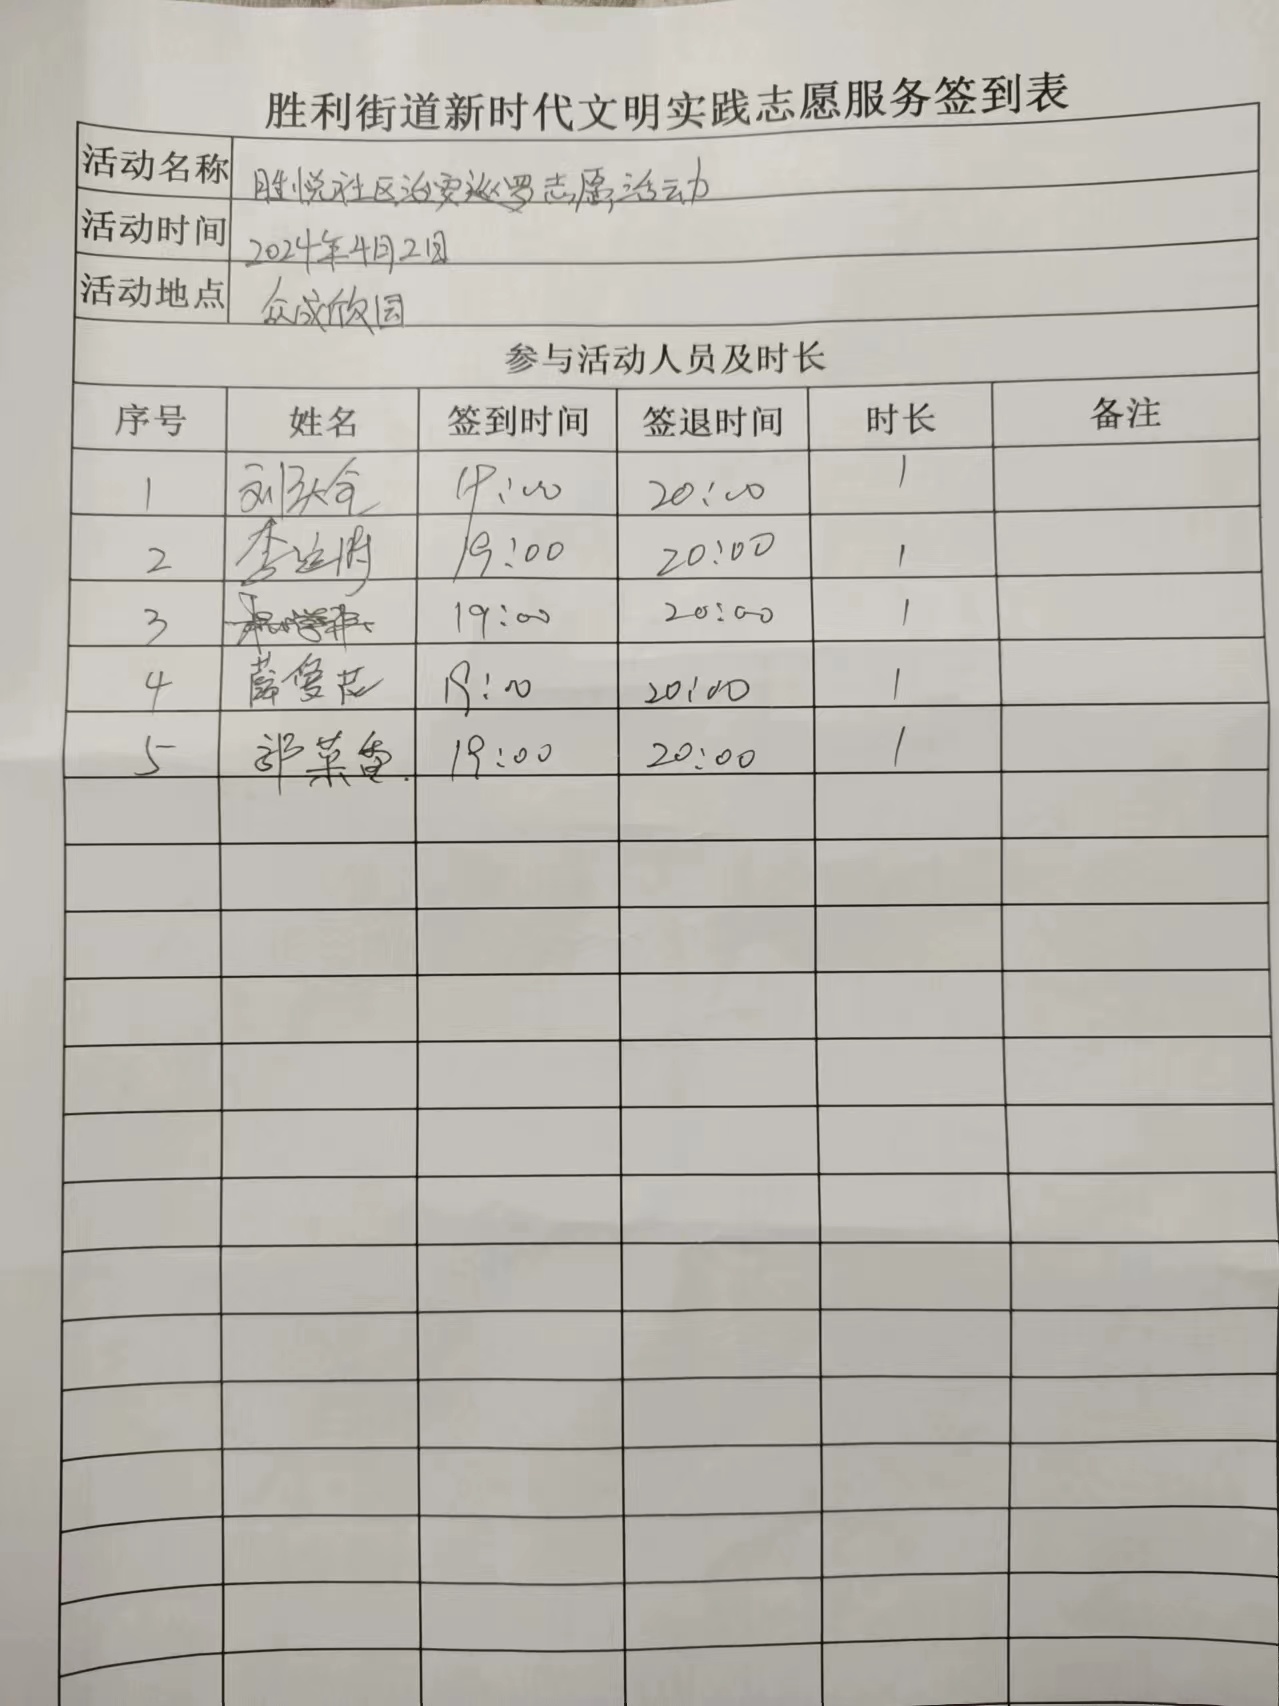 胜利街道新时代文明实践志愿服务签到表
活动名称 胜悦社区治安巡逻志愿活动
活动时间 2024年4月2日
活动地点 众成欣园
参与活动人员及时长
序号 姓名 签到时间 签退时间 时长 备注
1 刘 19:00 20:00 1
2 李 19:00 20:00 1
3 19:00 20:00 1
4 薛俊花 19:00 20:00 1
5 菜香 19:00 20:00 1